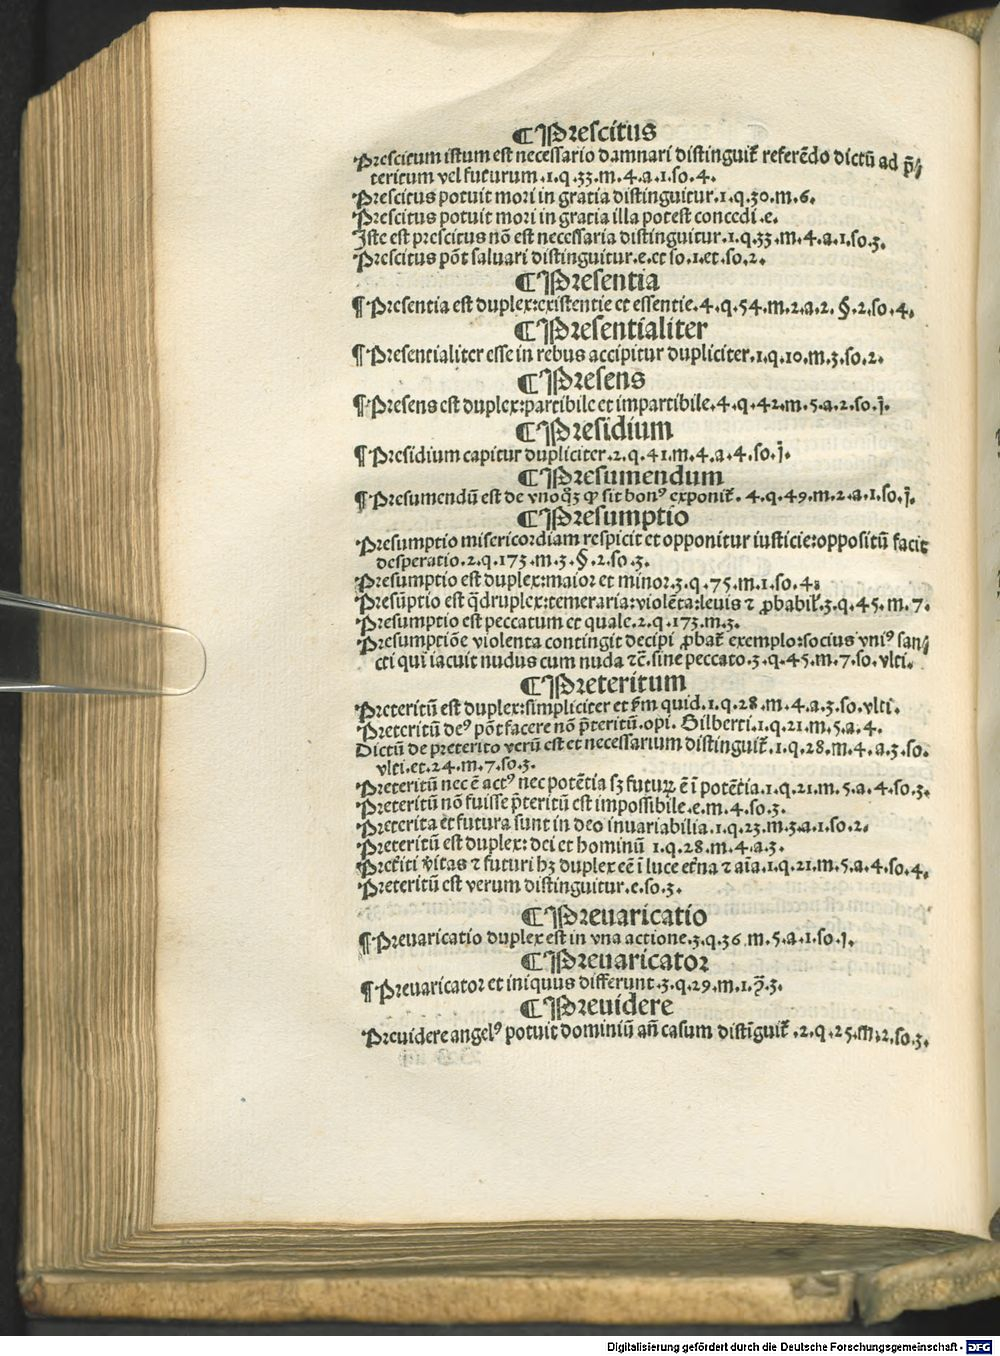 ¶Prescitus
Prescitum istum est necessario damnari distinguit᷑ referēdo dictū ad p̄⸗
teritum vel futurum.1.q.33.m.4.a.1.so.4.
Prescitus potuit mori in gratia distinguitur.1.q.30.m.6.
Prescitus potuit mori in gratia illa potest concedi.e.
Iste est prescitus nō est necessaria distinguitur.1.q.33.m.4.a.1.so.3.
Prescitus pōt saluari distinguitur.e.et so.1.et.so.2.
¶Presentia
¶Presentia est duplex:existentie et essentie.4.q.54.m.2.a.2.§.2.so.4.
¶Presentialiter
¶Presentialiter esse in rebus accipitur dupliciter.1.q.10.m.3.so.2.
¶Presens
¶Presens est duplex:partibile et impartibile.4.q.42.m.5.a.2.so.j.
¶Presidium
¶Presidium capitur dupliciter.2.q.41.m.4.a.4.so.j.
¶Presumendum
¶Presumendū est de vnoqꝫ ꝙ sit bonꝰ exponit᷑.4.q.49.m.2.a.1.so.j.
¶Presumptio
Presumptio misericordiam respicit et opponitur iusticie:oppositū facit
desperatio.2.q.173.m.3.§.2.so.3.
Presumptio est duplex:maior et minor.3.q.75.m.1.so.4.
Presūptio est q̄druplex:temeraria:violēta:leuis ⁊ ꝓbabił.3.q.45.m.7.
Presumptio est peccatum et quale.2.q.173.m.3.
Presumptiōe violenta contingit decipi ꝓbat᷑ exemplo:socius vniꝰ san⸗
cti qui iacuit nudus cum nuda ⁊c̄.sine peccato.3.q.45.m.7.so.vlti.
¶Preteritum
Preteritū est duplex:simpliciter et s̄m quid.1.q.28.m.4.a.3.so.vlti.
Preteritū deꝰ pōt facere nō p̄teritū.opi. Gilberti.1.q.21.m.5.a.4.
Dictū de preterito verū est et necessarium distinguit᷑.1.q.28.m.4.a.3.so.
vlti.et.24.m.7.so.3.
Preteritū nec ē actꝰ nec potētia sꝫ futuꝝ ē ī potētia.1.q.21.m.5.a.4.so.3.
Preteritū nō fuisse p̄teritū est impossibile.e.m.4.so.3.
Preterita et futura sunt in deo inuariabilia.1.q.23.m.3.a.1.so.2.
Preteritū est duplex: dei et hominū 1.q.28.m.4.a.3.
Pret᷑iti v̄itas ⁊ futuri hꝫ duplex eē ī luce et᷑na ⁊ aīa.1.q.21.m.5.a.4.so.4.
Preteritū est verum distinguitur.e.so.3.
¶Preuaricatio
¶Preuaricatio duplex est in vna actione.3.q.36 m.5.a.1.so.j.
¶Preuaricator
¶Preuaricator et iniquus differunt.3.q.29.m.1.p̄.3.
¶Preuidere
Preuidere angelꝰ potuit dominiū an̄ casum distīguit᷑.2.q.25.m.2.so.3.
Digitalisierung gefördert durch die Deutsche Forschungsgemeinschaft - DFG